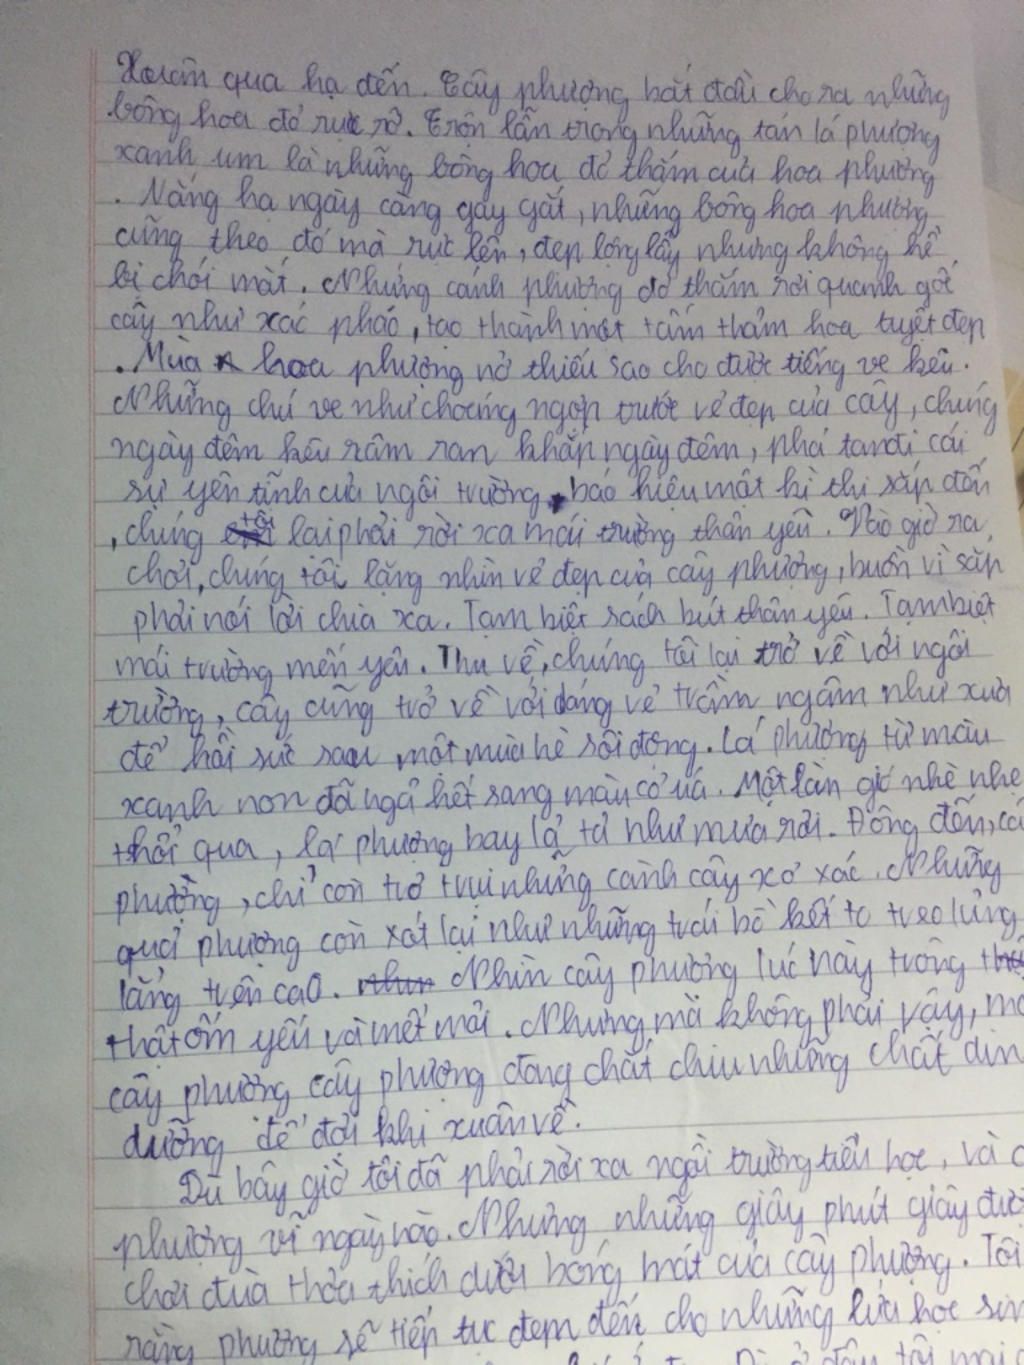 Xuân qua hạ đến. Cây phượng bắt đầu cho ra những
bông hoa đỏ rực rỡ. Trộn lẫn trong những tán lá phượng
xanh um là những bông hoa đỏ thắm của hoa phượng
. Nắng hạ ngày càng gay gắt, những bông hoa phượng
cũng theo đó mà rực lên, đẹp lộng lẫy nhưng không hề
bị chói mắt. Những cánh phượng đỏ thắm rơi quanh gốc
cây như xác pháo, tạo thành một tấm thảm hoa tuyệt đẹp
. Mùa hoa phượng nở thiếu sao cho được tiếng ve kêu.
Những chú ve như choáng ngợp trước vẻ đẹp của cây, chúng
ngày đêm kêu râm ran khắp ngày đêm, phá tan đi cái
sự yên tĩnh của ngôi trường, báo hiệu một kì thi sắp đến
, chúng tôi lại phải rời xa mái trường thân yêu. Vào giờ ra
chơi, chúng tôi lặng nhìn vẻ đẹp của cây phượng, buồn vì sắp
phải nói lời chia xa. Tạm biệt sách bút thân yêu. Tạm biệt
mái trường mến yêu. Thu về, chúng tôi lại trở về với ngôi
trường, cây cũng trở về với dáng vẻ trầm ngâm như xưa
để hồi sức sau một mùa hè sôi động. Lá phượng từ màu
xanh non đã ngả hết sang màu cỏ úa. Một làn gió nhè nhẹ
thổi qua, lá phượng bay lả tả như mưa rơi. Đông đến,
phượng, chỉ còn trơ trụi những cành cây xơ xác. Những
quả phượng còn xót lại như những trái bồ kết to treo lủng
lẳng trên cao. Nhìn cây phượng lúc này trông
thật ốm yếu và mệt mỏi. Nhưng mà không phải vậy,
cây phượng cây phượng đang chắt chiu những chất din
dưỡng để đợi khi xuân về.
Dù bây giờ tôi đã phải rời xa ngôi trường tiểu học, và
phượng vĩ ngày nào. Nhưng những giây phút giây
chơi đùa thỏa thích dưới bóng mát của cây phượng. Tôi
rằng phượng sẽ tiếp tục đem đến cho những lứa học